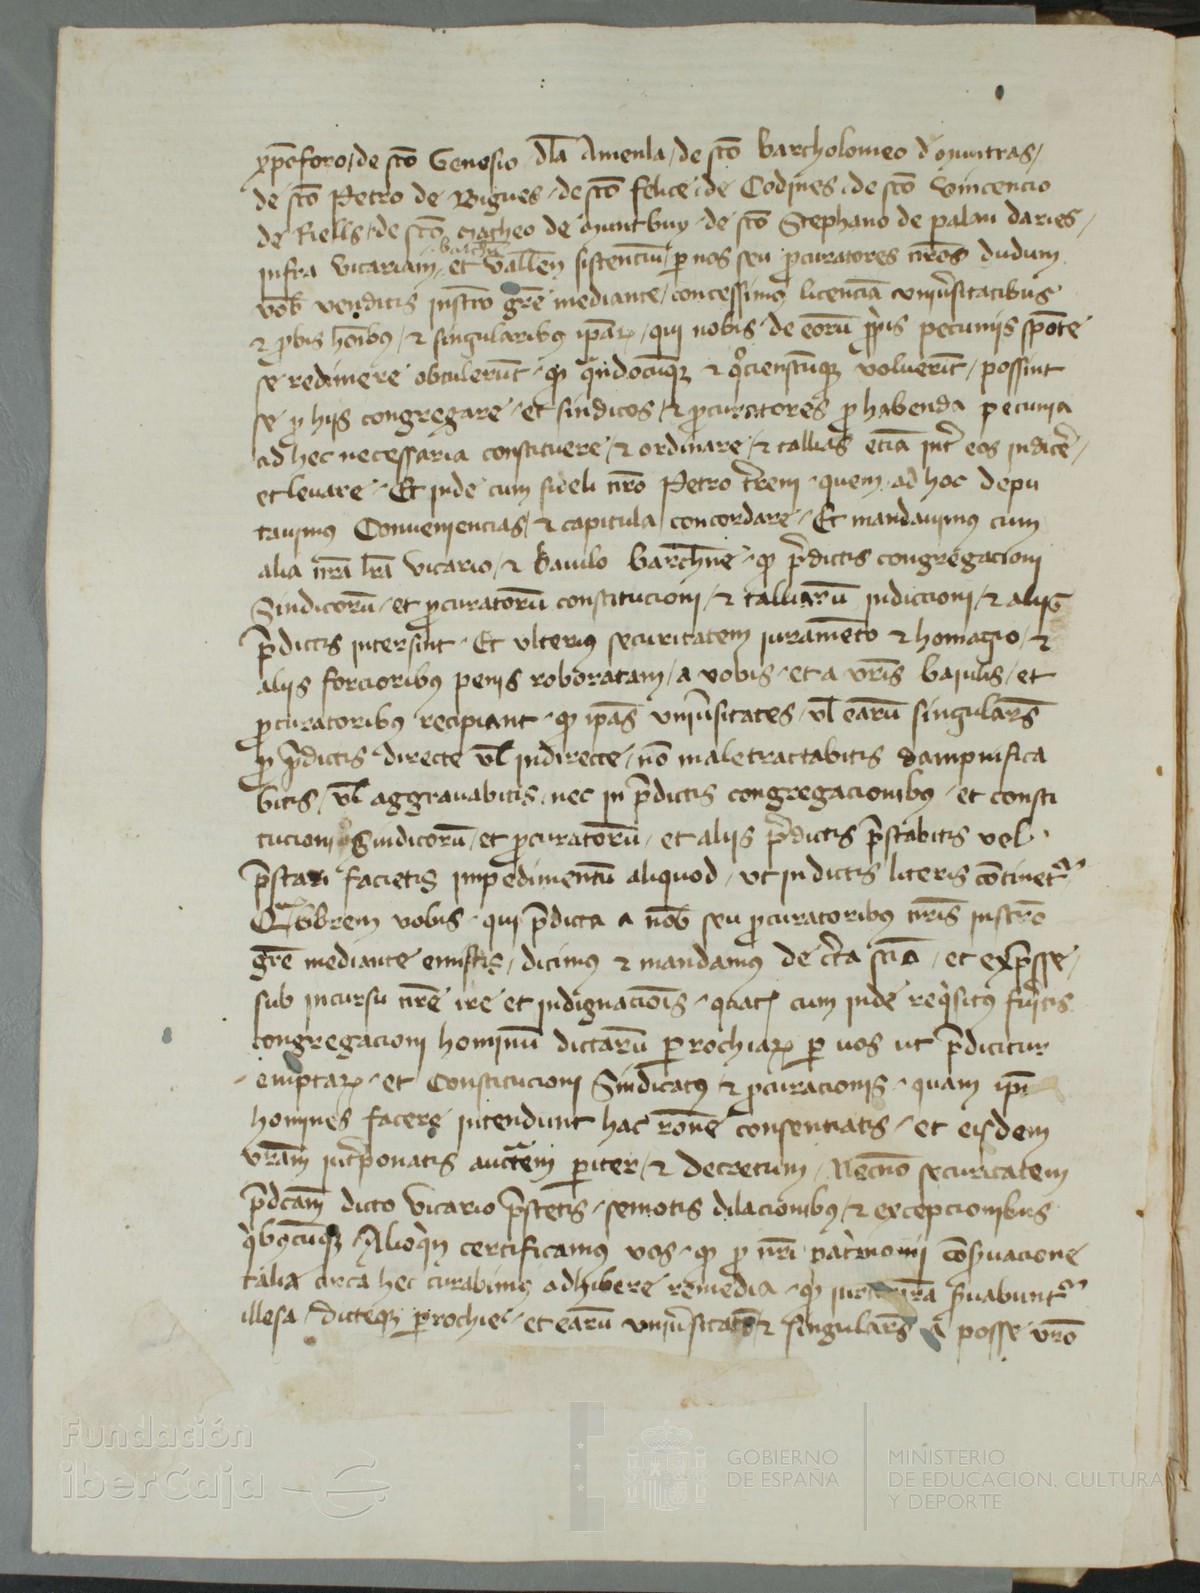 xp̄oforo / de sc̄o Genesio dl̄a Amenla / de sc̄o Bartholomeo d muntras /
de sc̄o Petro de Bigues · de sc̄o felice de Codines de sc̄o Vincencio
de Riells / de sc̄o Matheo de Muntbuy · de sc̄o Stephano de palau daries /
barchn̄
infra vicariam et vallen̄ sistenciū / p nos seu p̱curatores nr̄os dudum
vob̄ venditis instr̄o gr̄e mediante / concessimus licencia vniūsitatibus
⁊ p̱bis hoībus / ⁊ singularibus ip̄aꝝ / qui nobis de eorū pecuniis spōte
se redimere obtulerūt · ꝙ qn̄documqꝫ ⁊ qͦcienscūqꝫ voluerīt / possint
se p̱ hijs congregare / et sindicos / ⁊ p̱curatores p̱ habenda pecunia
ad hec necessaria constituere / ⁊ ordinare / ⁊ tallias etiā int̄ eos indic̄e /
et leuare / Et inde cum fideli nr̄o Petro · quem ad hoc depu
tauimus Conueniencias / ⁊ capitula concordare / Et mandauimus cum
alia nr̄a lr̄a vicario / ⁊ baiulo barchn̄e · ꝙ p̄dictis congregacioni
Sindicorū / et p̱curatorū constitucioni / ⁊ talliarū indiccioni / ⁊ aliis
p̄dictis intersint · Et vlterius securitatem iuramēto ⁊ homagio / ⁊
aliis forcioribus penis roboratam / a vobis · et a vr̄is baiulis / et
p̱curatoribus recipiant · ꝙ ip̄as vniūsitates / vl̄ earū singulars̄
p̱ p̄dictis directe vl̄ indirecte / nō maletractabitis dampnifica
bitis / vl̄ aggrauabitis / nec in p̄dictis congregacionibus / et consti
tucioni Sindicorū / et p̱curatorū / et aliis p̄dictis p̄stabitis vel
p̄stari facietis impedimentū aliquod / vt in dictis literis cōtinetʳ
Quobrem vobis · qui p̄dicta a nob̄ seu p̱curatoribus nr̄is instrō
gr̄e mediante emistis / dicimus ⁊ mandamus de c̄ta scīa / et exp̄sse /
sub incursu nr̄e ire et indignaciōis · qͣtꝰ cum inde req̇situs fūitis
congregacioni hominū dictarū parrochiaꝝ p uos ut p̄dicitur
emptaꝝ · et Constitucioni Sindicatus ⁊ p̱curacionis · quam ip̄i
homines facere intendunt hac rōne consentiatis / et eisdem
vr̄am int̄ponatis auctem̄ pariter / ⁊ decretum / Necnō securitatem
p̄dcām dicto vicario p̄stetis / semotis dilacionibus / ⁊ excepcionibus
q̇buscūqꝫ / Alioq̇n certificamus vos · ꝙ p̱ nr̄i patrimonii cōs̱uacione
talia circa hec curabimus adhibere remedia · ꝙ iura nr̄a s̱uabuntʳ
illesa / dicteqꝫ parrochie / et earū vniūsitates / ⁊ singulars̄ a posse vr̄o